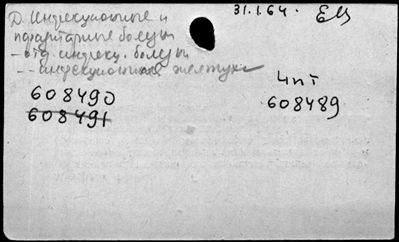 Д. Инфекционные и
паразитарные болезни
- отд. инфекц. болезни
-- инфекционная желтуха
31.1.64.
608490
608491
608489